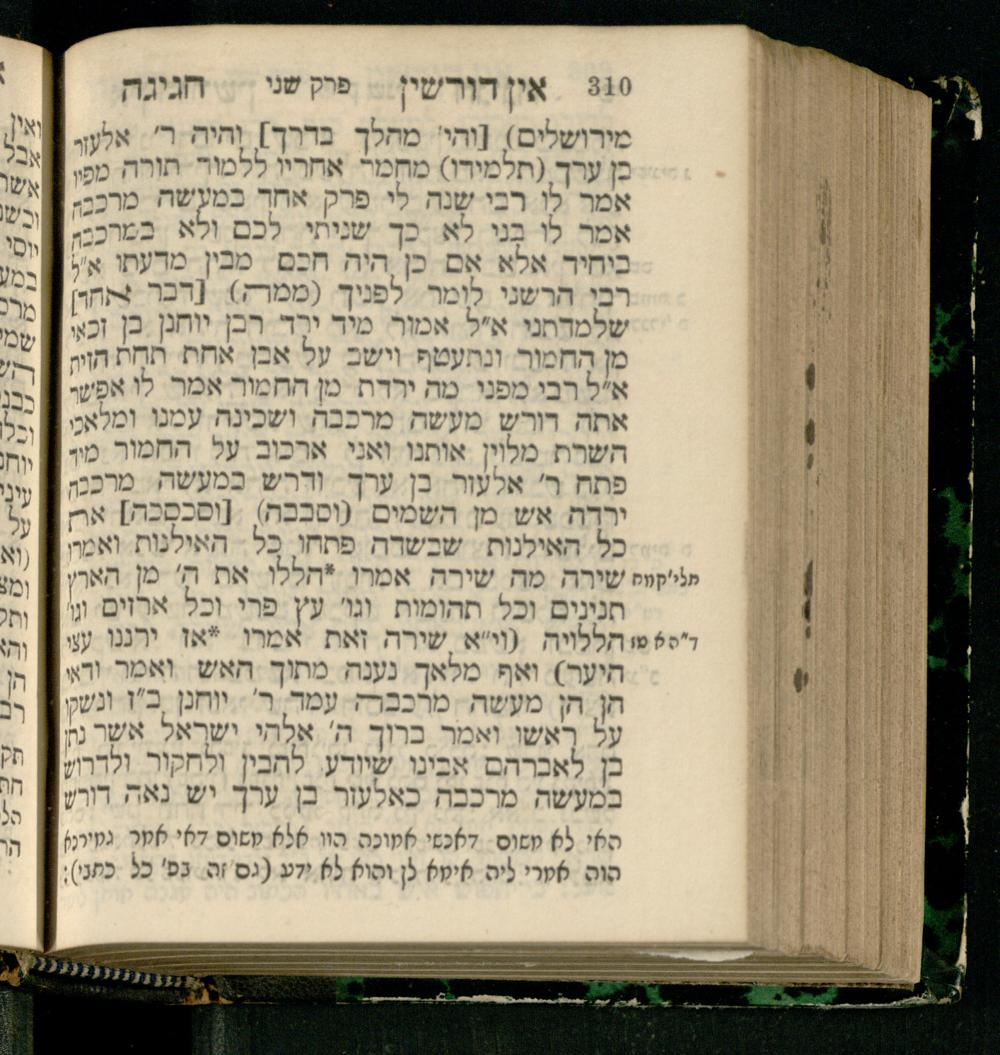 310 אין דורשין פרק שני חגיגה
מירושלים) [והי' מהלך בדרך] והיה ר' אלעזר
בן ערך (תלמידו) מחמר אחריו ללמוד תורה מפיו
אמר לו רבי שנה לי פרק אחד במעשה מרכבה
אמר לו בני לא כך שניתי לכם ולא במרכבה
ביחיד אלא אם כן היה חכם מבין מדעתו א"ל
רבי הרשני לומר לפניך (ממרה) [דבר אחד]
שלמדתני א"ל אמור מיד ירד רבן יוחנן בן זכאי
מן החמור ונתעטף וישב על אבן אחת תחת הזית
א"ל רבי מפני מה ירדת מן החמור אמר לו אפשר
אתה דורש מעשה מרכבה ושכינה עמנו ומלאכי
השרת מלוין אותנו ואני ארכוב על החמור מיד
פתח ר' אלעזר בן ערך ודרש במעשה מרכבה
ירדה אש מן השמים (וסבבה) [וסכסכה] את
כל האילנות שבשדה פתחו כל האילנות ואמרו
תלי' קמח שירה מה שירה אמרו *הללו את ה' מן הארץ
תנינים וכל תהומות וגו' עץ פרי וכל ארזים וגו'
ד"ה א טז הללויה (וי"א שירה זאת אמרו *אז ירננו עצי
היער) ואף מלאך נענה מתוך האש ואמר ודאי
הן הן מעשה מרכבה עמד ר' יוחנן ב"ז ונשקו
על ראשו ואמר ברוך ה' אלהי ישראל אשר נתן
בן לאברהם אבינו שיודע להבין ולחקור ולדרוש
במעשה מרכבה כאלעזר בן ערך יש נאה דורש
האי לא משום דאנשי אמונה הוו אלא משום דאי אמר גמירנא
הוה אמרי ליה אימא לן והוא לא ידע (גם זה בפ' כל כתבי):
ואין
אבל
אשר
יוסי
על
הן